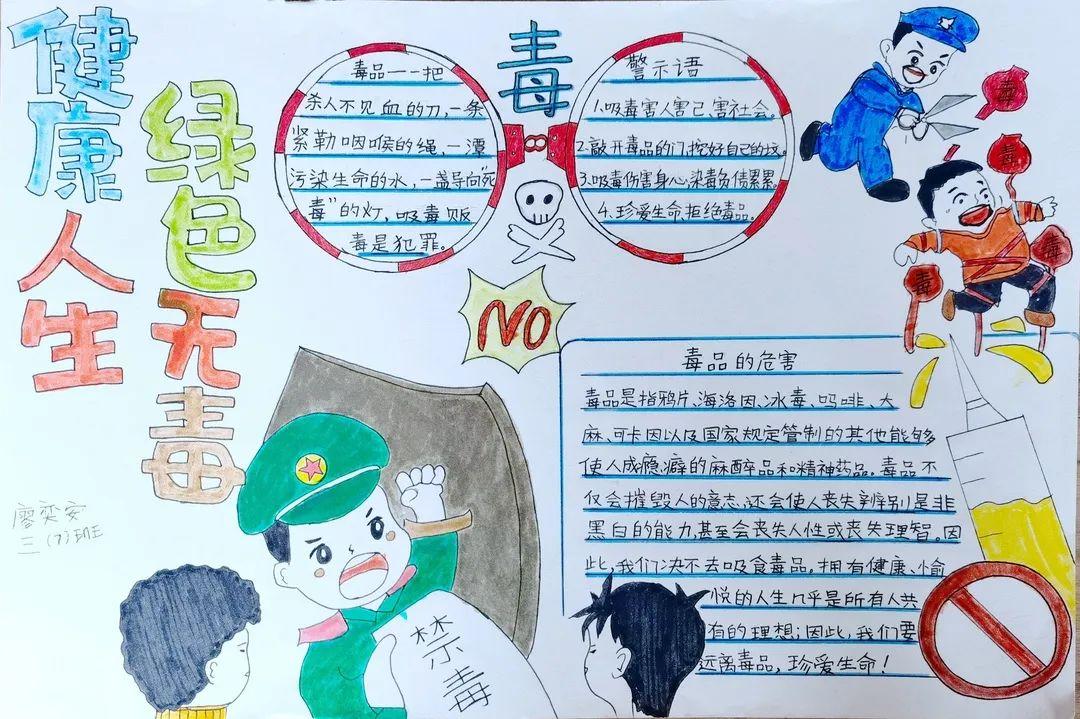 健康人生
绿色无毒
廖奕安
三(7)班
毒
毒品——把
杀人不见血的刀,一条
紧勒咽喉的绳,一潭
污染生命的水,一盏导向“死
毒”的灯,吸毒贩
毒是犯罪。
警示语
1.吸毒害人害己、害社会。
2.敲开毒品的门,挖好自己的坟。
3.吸毒伤害身心,染毒负债累累。
4.珍爱生命拒绝毒品。
毒
毒
毒
毒
NO
毒品的危害
毒品是指鸦片、海洛因、冰毒、吗啡、大
麻、可卡因以及国家规定管制的其他能够
使人成瘾癖的麻醉品和精神药品。毒品不
仅会摧毁人的意志,还会使人丧失辨别是非
黑白的能力,甚至会丧失人性或丧失理智。因
此,我们决不去吸食毒品。拥有健康、愉
悦的人生几乎是所有人共
有的理想;因此,我们要
远离毒品,珍爱生命!
禁毒